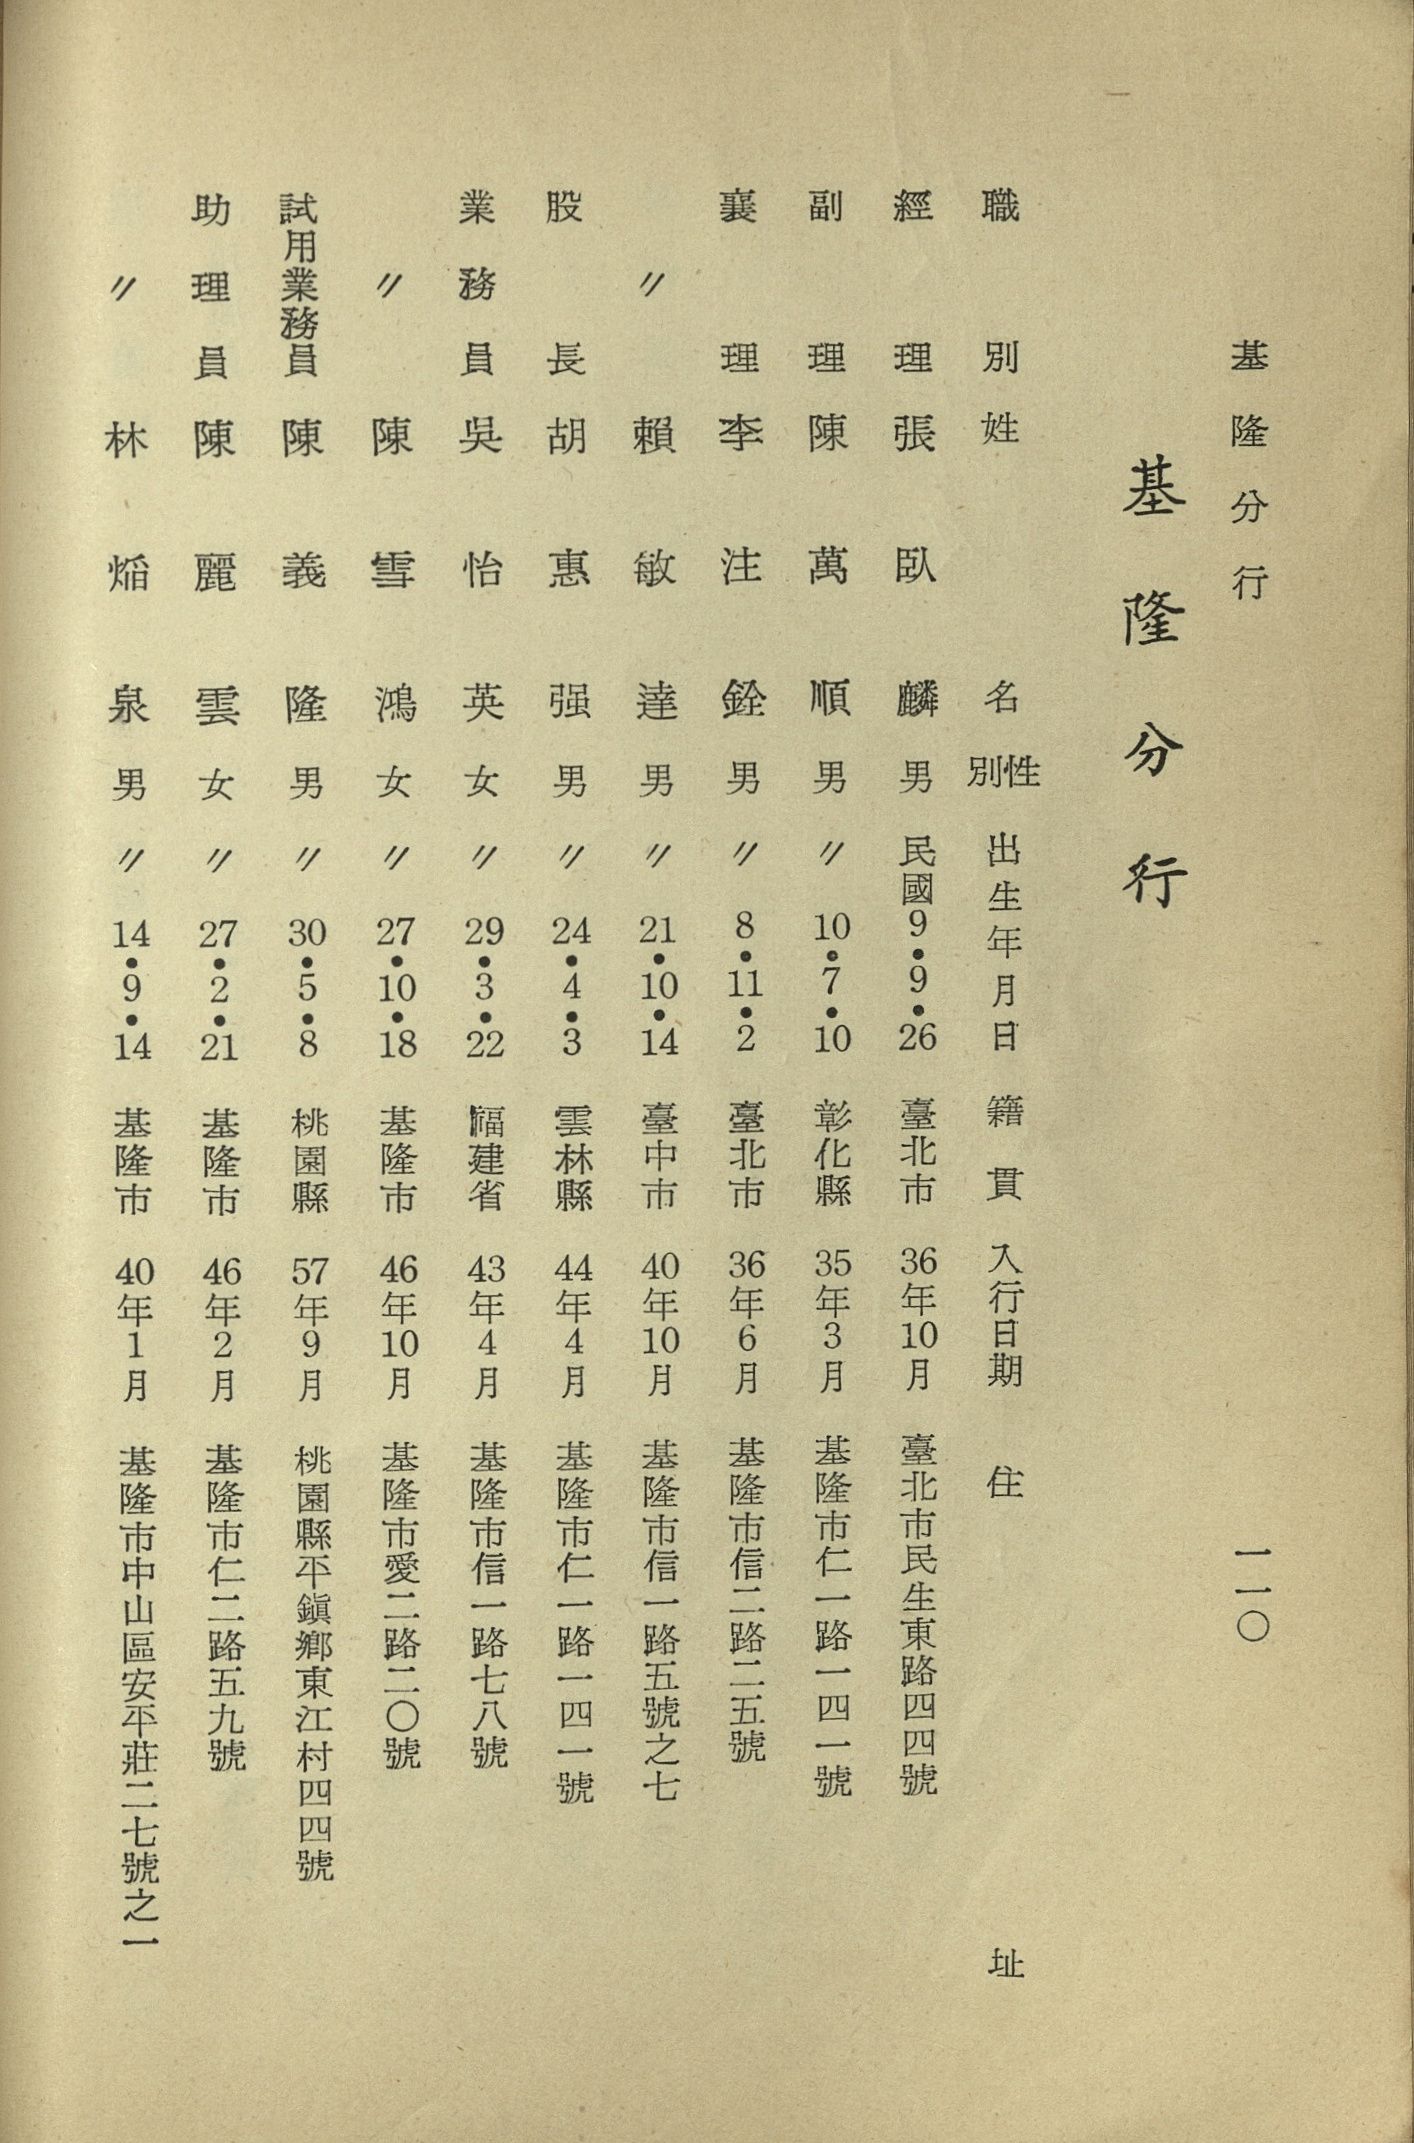 基隆分行
一一〇
基隆分行
職別 姓名 性別 出生年月日 籍貫 入行日期 住址
經理 張臥麟 男 民國9•9•26 臺北市 36年10月 臺北市民生東路四四號
副理 陳萬順 男 〃10•7•10 彰化縣 35年3月 基隆市仁一路一四一號
襄理 李注銓 男 〃8•11•2 臺北市 36年6月 基隆市信二路二五號
〃 賴敏達 男 〃21•10•14 臺中市 40年10月 基隆市信一路五號之七
股長 胡惠强 男 〃24•4•3 雲林縣 44年4月 基隆市仁一路一四一號
業務員 吳怡英 女 〃29•3•22 福建省 43年4月 基隆市信一路七八號
〃 陳雪鴻 女 〃27•10•18 基隆市 46年10月 基隆市愛二路二〇號
試用業務員 陳義隆 男 〃30•5•8 桃園縣 57年9月 桃園縣平鎭鄉東江村四四號
助理員 陳麗雲 女 〃27•2•21 基隆市 46年2月 基隆市仁二路五九號
〃 林熖泉 男 〃14•9•14 基隆市 40年1月 基隆市中山區安平莊二七號之一